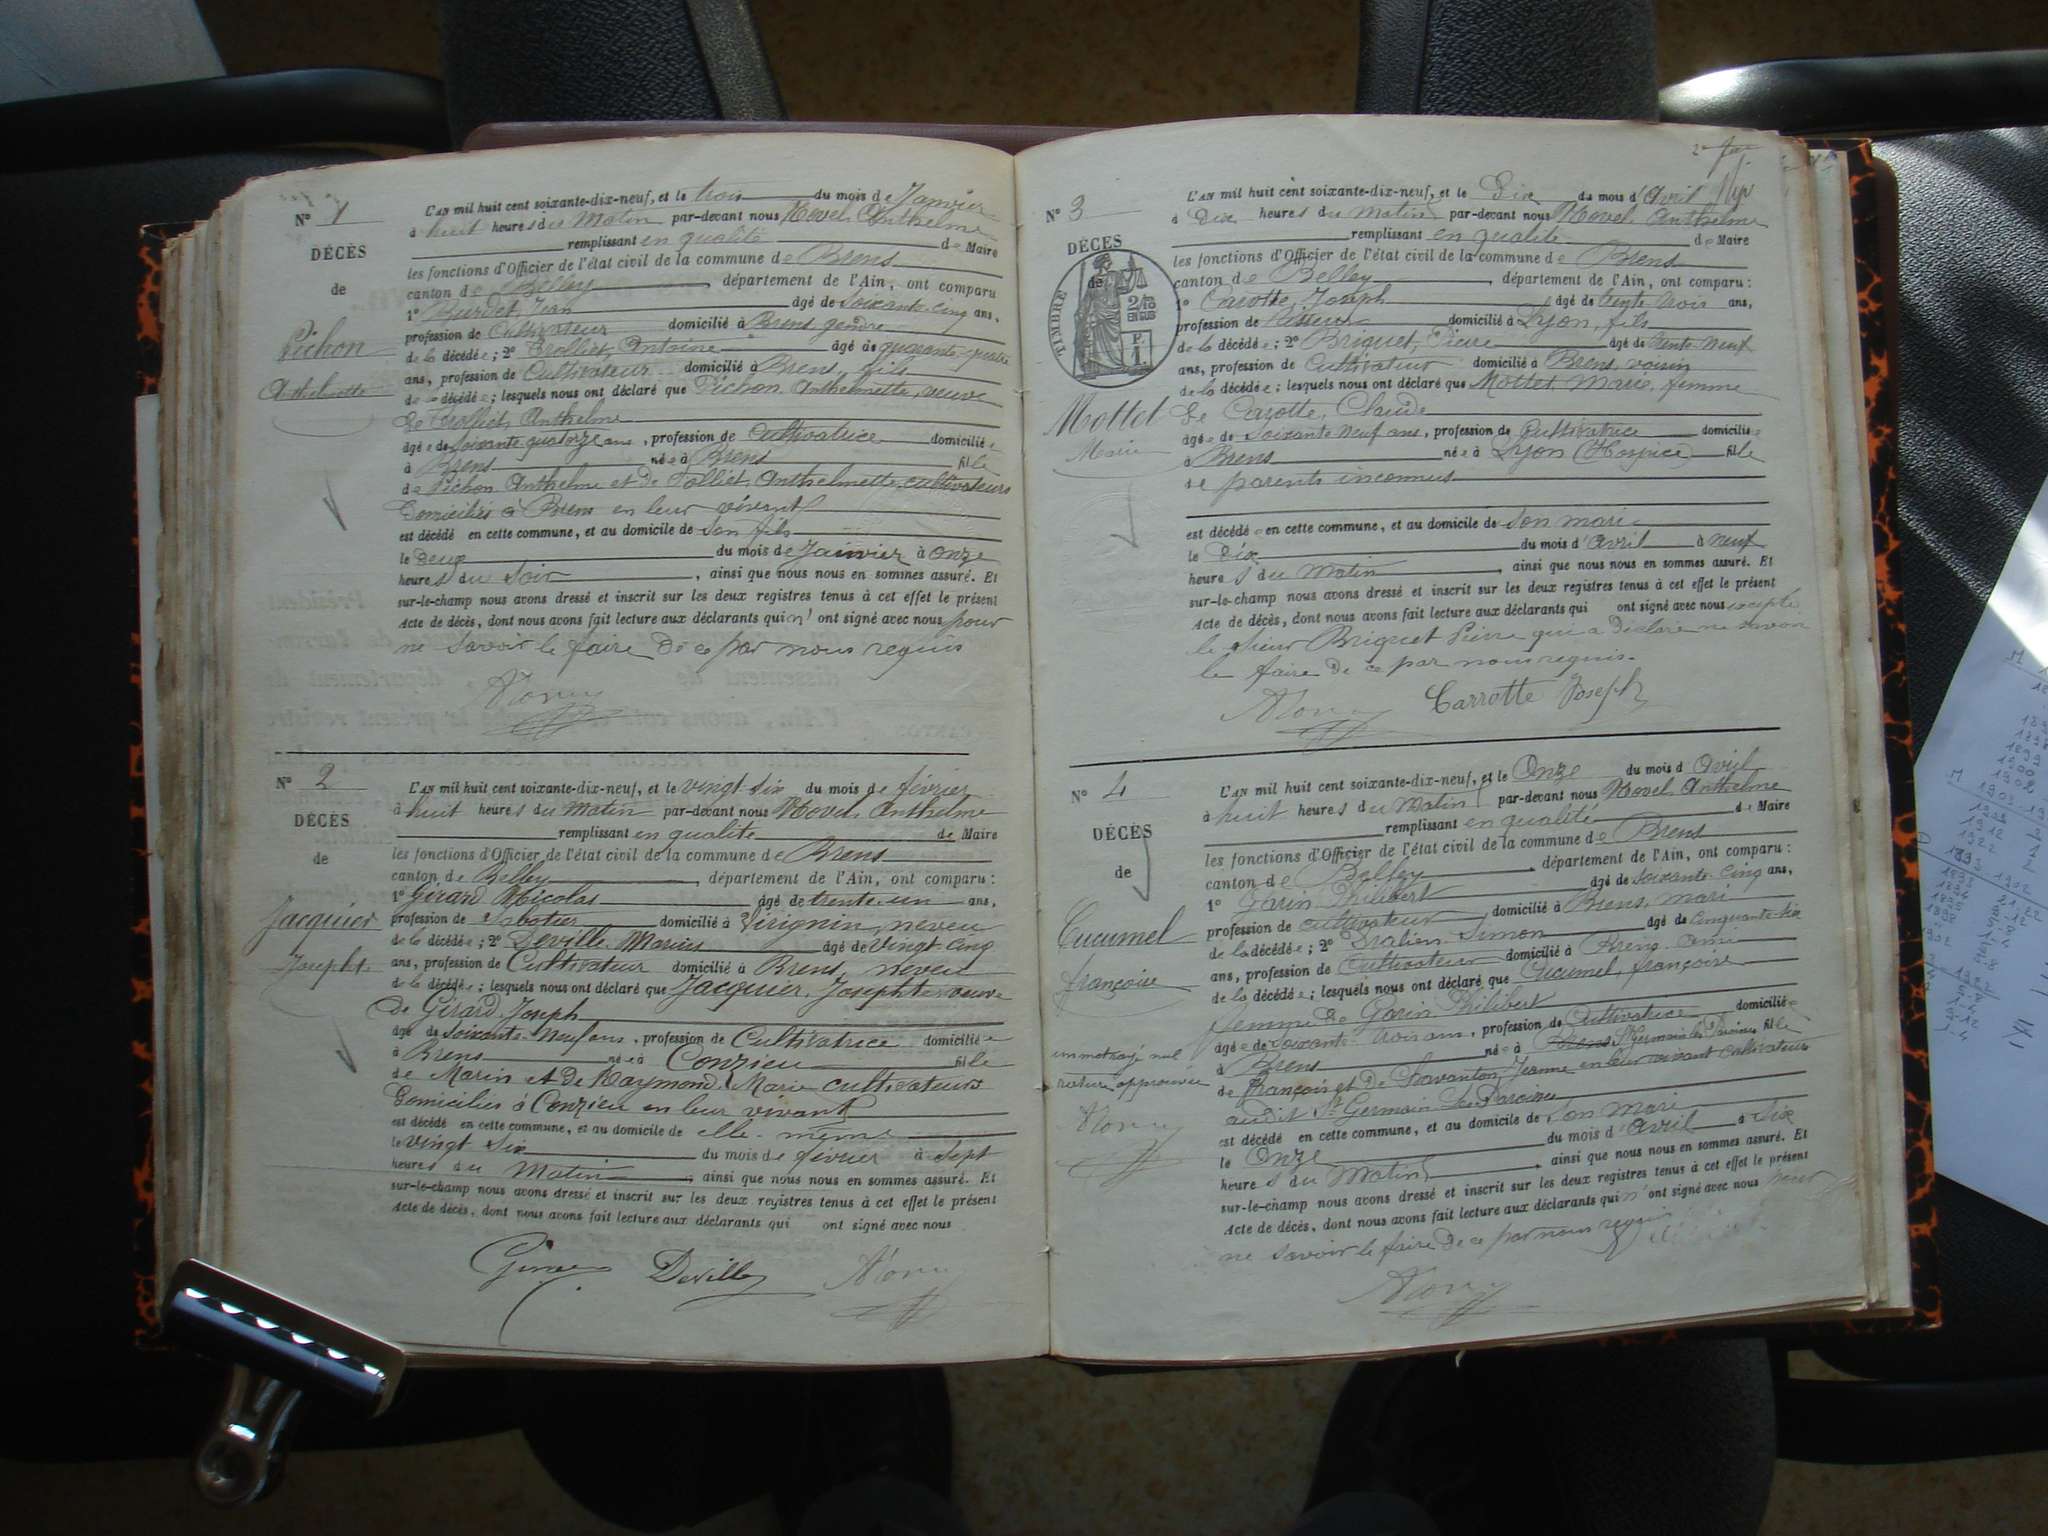 N° 1
DÉCÈS
de
Pichon
Anthelmette
L'AN mil huit cent soixante-dix-neuf, et le trois du mois de Janvier
à huit heures du Matin par-devant nous Novel Anthelme
remplissant en qualité de Maire
les fonctions d'Officier de l'état civil de la commune de Brens
canton de Belley, département de l'Ain, ont comparu
1° Burdet, Jean âgé de soixante-cinq ans,
profession de Cultivateur domicilié à Brens gendre
de la décédée; 2° Trolliet, Antoine âgé de quarante-quatre
ans, profession de Cultivateur domicilié à Brens, fils
de la décédée; lesquels nous ont déclaré que Pichon Anthelmette, veuve
de Trolliet, Anthelme
âgée de soixante-quatorze ans, profession de cultivatrice domiciliée
à Brens née à Brens fille
de Pichon Anthelme et de Anthelmette cultivateurs
domiciliés à Brens en leur vivant
est décédé en cette commune, et au domicile de son fils
le deux du mois de Janvier à onze
heures du soir, ainsi que nous nous en sommes assuré. Et
sur-le-champ nous avons dressé et inscrit sur les deux registres tenus à cet effet le présent
Acte de décès, dont nous avons fait lecture aux déclarants qui n'ont signé avec nous pour
ne savoir le faire de ce par nous requis
N° 2
DÉCÈS
de
Jacquier
Josephte
L'AN mil huit cent soixante-dix-neuf, et le vingt-six du mois de février
à huit heures du Matin par-devant nous Novel Anthelme
remplissant en qualité de Maire
les fonctions d'Officier de l'état civil de la commune de Brens
canton de Belley, département de l'Ain, ont comparu:
1° Girard Nicolas âgé de trente-un ans,
profession de Sabotier domicilié à Virignin, neveu
de la décédée; 2° Deville Marius âgé de vingt-cinq
ans, profession de Cultivateur domicilié à Brens, neveu
de la décédée; lesquels nous ont déclaré que Jacquier, Josephte veuve
de Girard Joseph
âgé de soixante-neuf ans, profession de Cultivatrice domiciliée
à Brens née à Conzieu fille
de Marin et de Raymond Marie cultivateurs
domiciliés à Conzieu en leur vivant
est décédé en cette commune, et au domicile de elle-même
le vingt six du mois de février à sept
heures du Matin, ainsi que nous nous en sommes assuré. Et
sur-le-champ nous avons dressé et inscrit sur les deux registres tenus à cet effet le présent
Acte de décès, dont nous avons fait lecture aux déclarants qui ont signé avec nous
Deville
N° 3
DÉCÈS
de
TIMBRE
2/10
EN SUS
F.
1.
Mottet
Marie
L'AN mil huit cent soixante-dix-neuf, et le Dix du mois d'Avril
à Dix heures du Matin par-devant nous Novel Anthelme
remplissant en qualité de Maire
les fonctions d'Officier de l'état civil de la commune de Brens
canton de Belley, département de l'Ain, ont comparu:
1° Carotte, Joseph âgé de trente trois ans,
profession de domicilié à Lyon, fils
de la décédée; 2° Briquet, Pierre âgé de trente-neuf
ans, profession de Cultivateur domicilié à Brens, voisin
de la décédée; lesquels nous ont déclaré que Mottet Marie, femme
de Carotte, Claude
âgée de soixante neuf ans, profession de Cultivatrice domiciliée
à Brens née à Lyon (Hospice) fille
de parents inconnus
est décédée en cette commune, et au domicile de son mari
le dix du mois d'avril à neuf
heures du Matin, ainsi que nous nous en sommes assuré. Et
sur-le-champ nous avons dressé et inscrit sur les deux registres tenus à cet effet le présent
Acte de décès, dont nous avons fait lecture aux déclarants qui ont signé avec nous excepté
le sieur Briquet Pierre qui a déclaré ne savoir
le faire de ce par nous requis.
Carrotte Joseph
N° 4
DÉCÈS
de
Cucumel
françoise
L'AN mil huit cent soixante-dix-neuf, et le Onze du mois d'Avril
à huit heures du Matin par-devant nous Novel Anthelme
remplissant en qualité de Maire
les fonctions d'Officier de l'état civil de la commune de Brens
canton de Belley, département de l'Ain, ont comparu:
1° Garin Philibert âgé de soixante-cinq ans,
profession de cultivateur, domicilié à Brens, mari
de la décédée; 2° Simon âgé de cinquante-six
ans, profession de Cultivateur domicilié à Brens, ami
de la décédée; lesquels nous ont déclaré que Cucumel, françoise
femme de Garin Philibert
âgée de soixante-trois ans, profession de Cultivatrice domiciliée
à Brens née à Brens St Germain les Paroisses fille
de François et de Jeanne en leur vivant cultivateurs
audit St Germain les Paroisses
un mot rayé nul
rature approuvée
est décédé en cette commune, et au domicile de son mari
le Onze du mois d'avril à six
heures du Matin, ainsi que nous nous en sommes assuré. Et
sur-le-champ nous avons dressé et inscrit sur les deux registres tenus à cet effet le présent
Acte de décès, dont nous avons fait lecture aux déclarants qui n'ont signé avec nous pour
ne savoir le faire de ce par nous requis